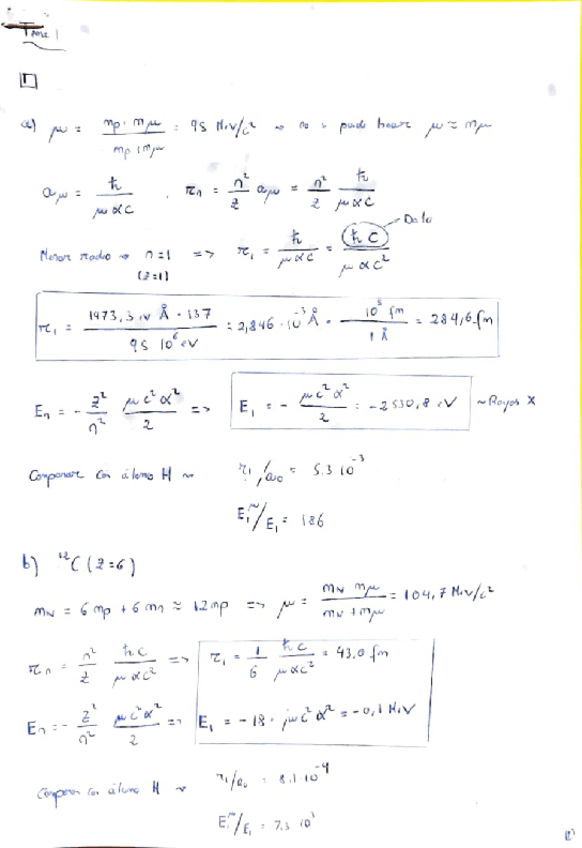 Tema 1
1
a) μ = mp · mμ / mp + mμ = 95 MeV/c² → no se puede hacer μ ≈ mμ
aμ = ħ / μαc , rn = n²/Z aμ = n²/Z ħ/μαc
Dato
Menor radio → n=1 => r₁ = ħ/μαc = ħc/μαc²
(Z=1)
r₁ = 1973,3 eV Å · 137 / 95 10⁶ eV = 2,846 · 10⁻³ Å · 10⁵ fm / 1 Å = 284,6 fm
En = - Z²/n² μc²α²/2 => E₁ = - μc²α²/2 = -2530,8 eV ~ Rayos X
Comparar con átomo H → r₁/a₀ = 5.3 10⁻³
E₁^μ/E₁ = 186
b) ¹²C (Z=6)
mN = 6 mp + 6 mn ≈ 12 mp => μ = mN mμ / mN + mμ = 104,7 MeV/c²
rn = n²/Z ħc/μαc² => r₁ = 1/6 ħc/μαc² = 43,0 fm
En = - Z²/n² μc²α²/2 => E₁ = -18 · μc²α² = -0,1 MeV
Comparar con átomo H → r₁/a₀ = 8.1 10⁻⁴
E₁^μ/E₁ = 7.3 10³